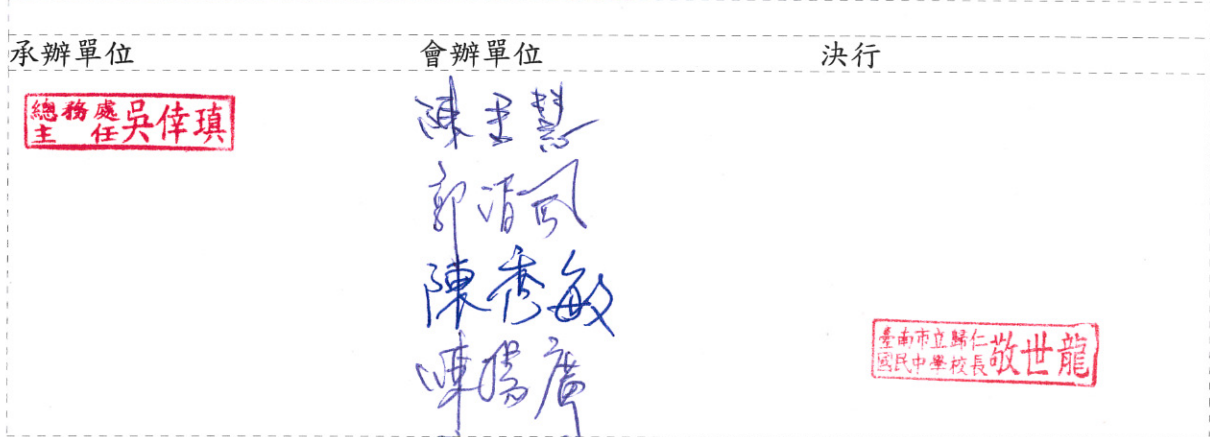 承辦單位
會辦單位
決行
總務處
主任 吳倖瑱
陳聿慧
郭清風
陳秀敏
陳勝廣
臺南市立歸仁
國民中學校長 敬世龍